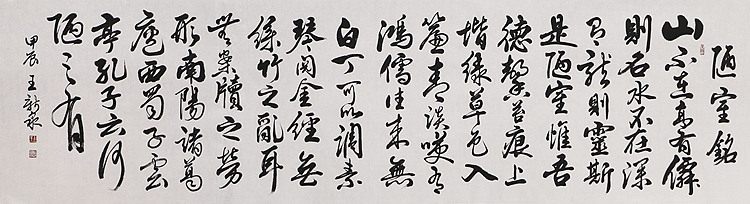 陋室銘
山不在高有僊
則名水不在深
有龍則靈斯
是陋室惟吾
德馨苔痕上
堦綠草色入
簾青談咲有
鴻儒往來無
白丁可以調素
琴閱金經無
絲竹之亂耳
無案牘之勞
形南陽諸葛
廬西蜀子雲
亭孔子云何
陋之有
甲辰 王新